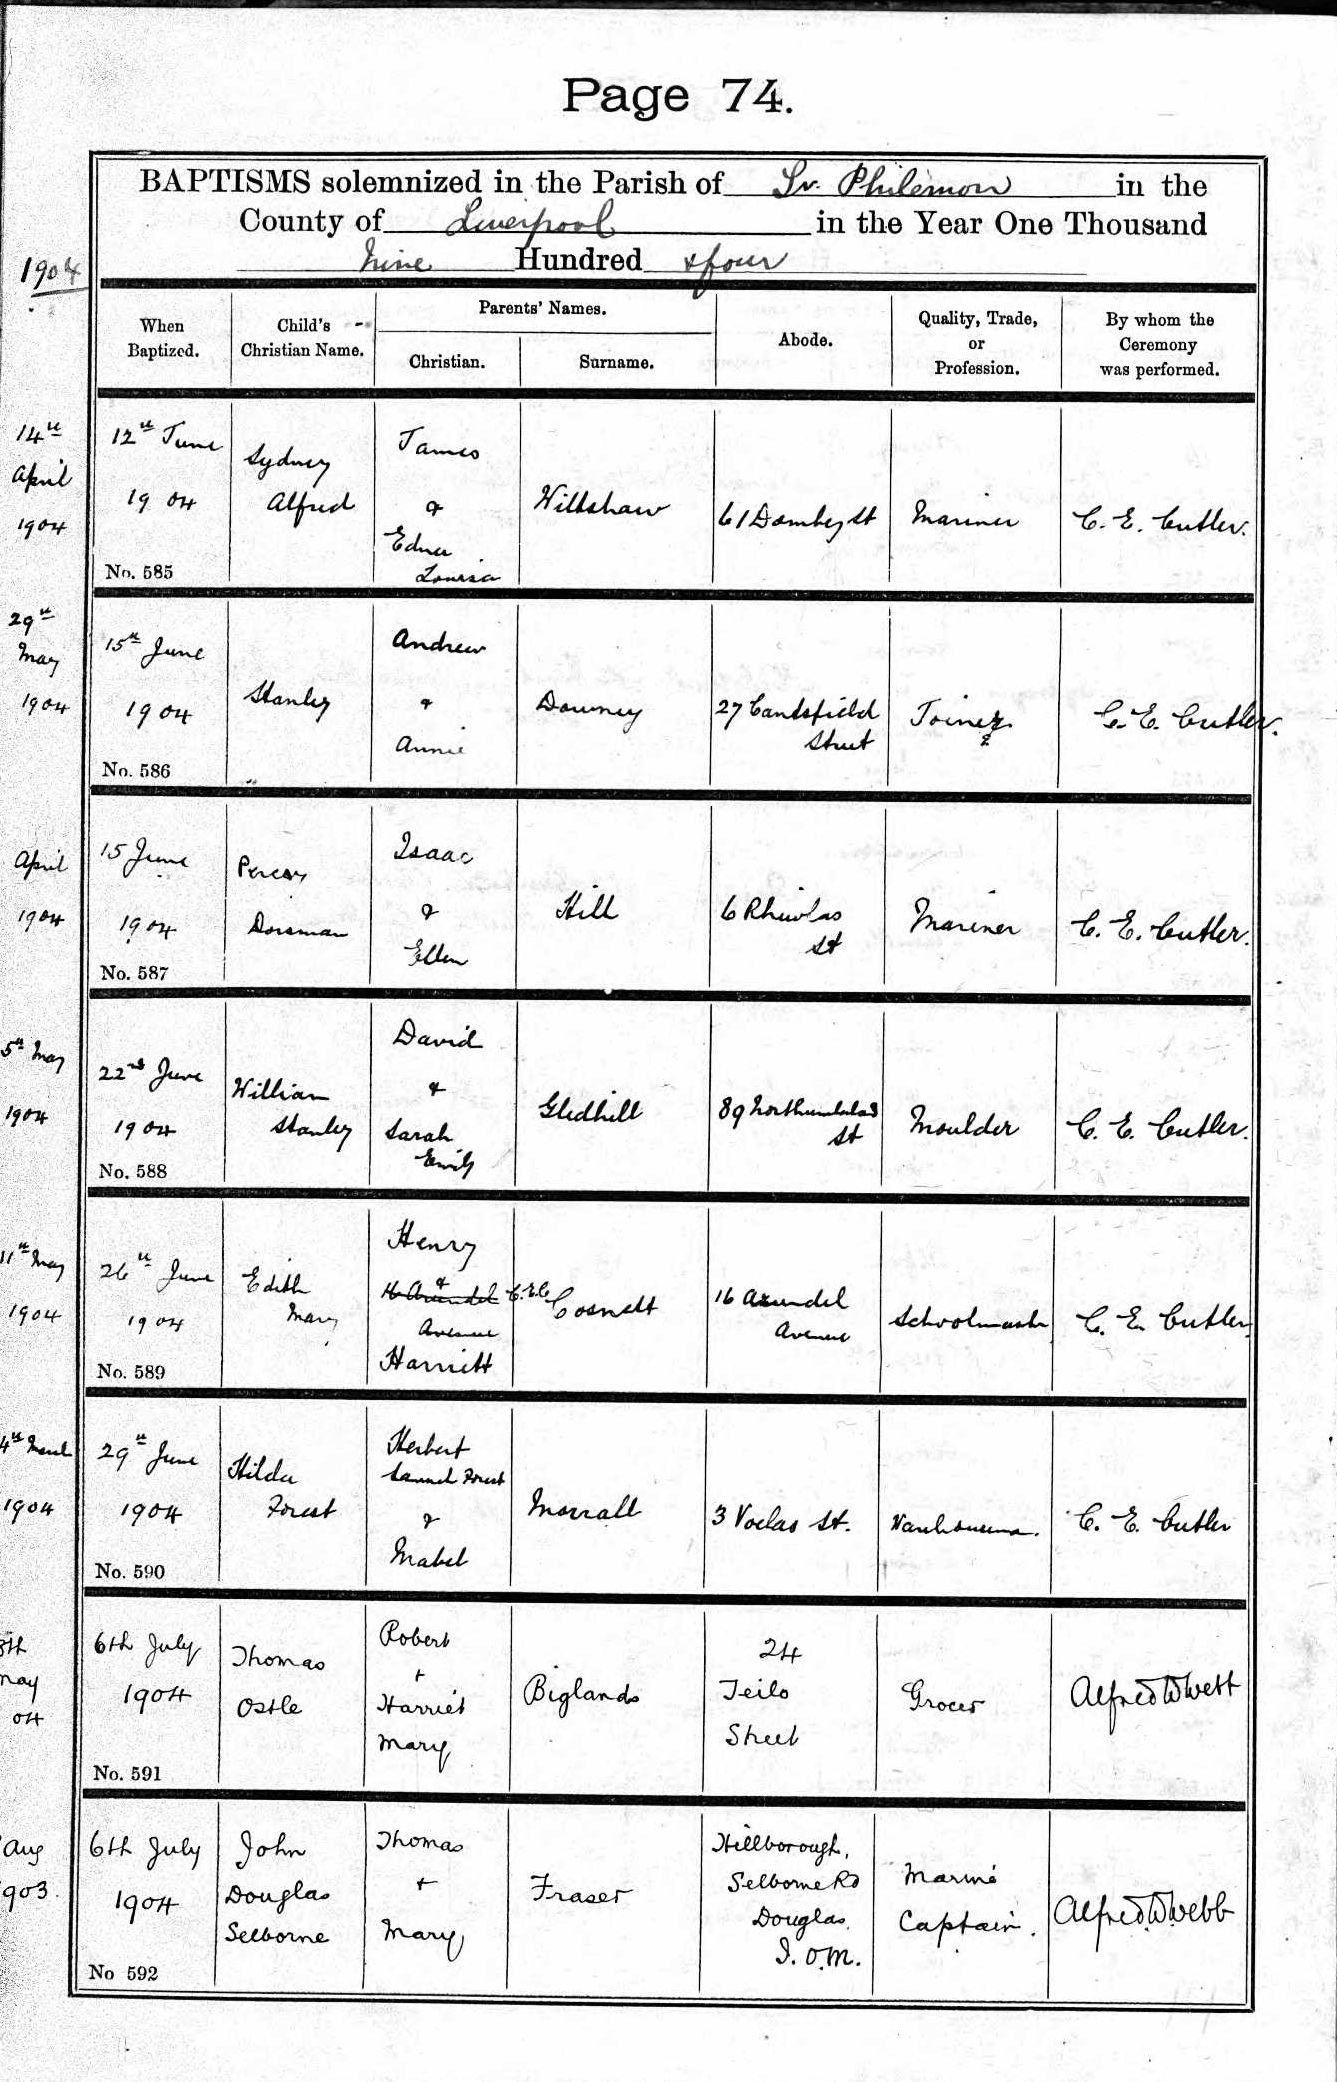 Page 74.
BAPTISMS solemnized in the Parish of St. Philemon in the
County of Liverpool in the Year One Thousand
Nine Hundred & four
1904
When Baptized.
Child's Christian Name.
Parents' Names.
Christian.
Surname.
Abode.
Quality, Trade, or Profession.
By whom the Ceremony was performed.
14th
April
1904
12th June
1904
No. 585
Sydney
Alfred
James
&
Edna
Louisa
Wiltshaw
61 Dombey St
Mariner
C. E. Cutler.
29th
May
1904
15th June
1904
No. 586
Stanley
Andrew
&
Annie
Downey
27 Cantsfield
Street
Joiner
C. E. Cutler.
April
1904
15 June
1904
No. 587
Percy
Dorsman
Isaac
&
Ellen
Hill
6 Rhiwlas
St
Mariner
C. E. Cutler.
5th May
1904
22nd June
1904
No. 588
William
Stanley
David
&
Sarah
Emily
Gledhill
89 Northumberland
St
Moulder
C. E. Cutler.
11th May
1904
26th June
1904
No. 589
Edith
Mary
Henry
&
16 Arundel
Avenue
Harriett
C.E.C.
Cosnett
16 Arundel
Avenue
Schoolmaster
C. E. Cutler
4th March
1904
29th June
1904
No. 590
Hilda
Forest
Herbert
Samuel Forest
&
Mabel
Morrall
3 Voelas St.
Warehouseman.
C. E. Cutler
8th
May
04
6th July
1904
No. 591
Thomas
Ostle
Robert
+
Harriet
Mary
Biglands
24
Teilo
Street
Grocer
Alfred W Webb
Aug
903.
6th July
1904
No 592
John
Douglas
Selborne
Thomas
+
Mary
Fraser
Hillborough,
Selborne Rd
Douglas.
I.O.M.
Marine
Captain.
Alfred W Webb